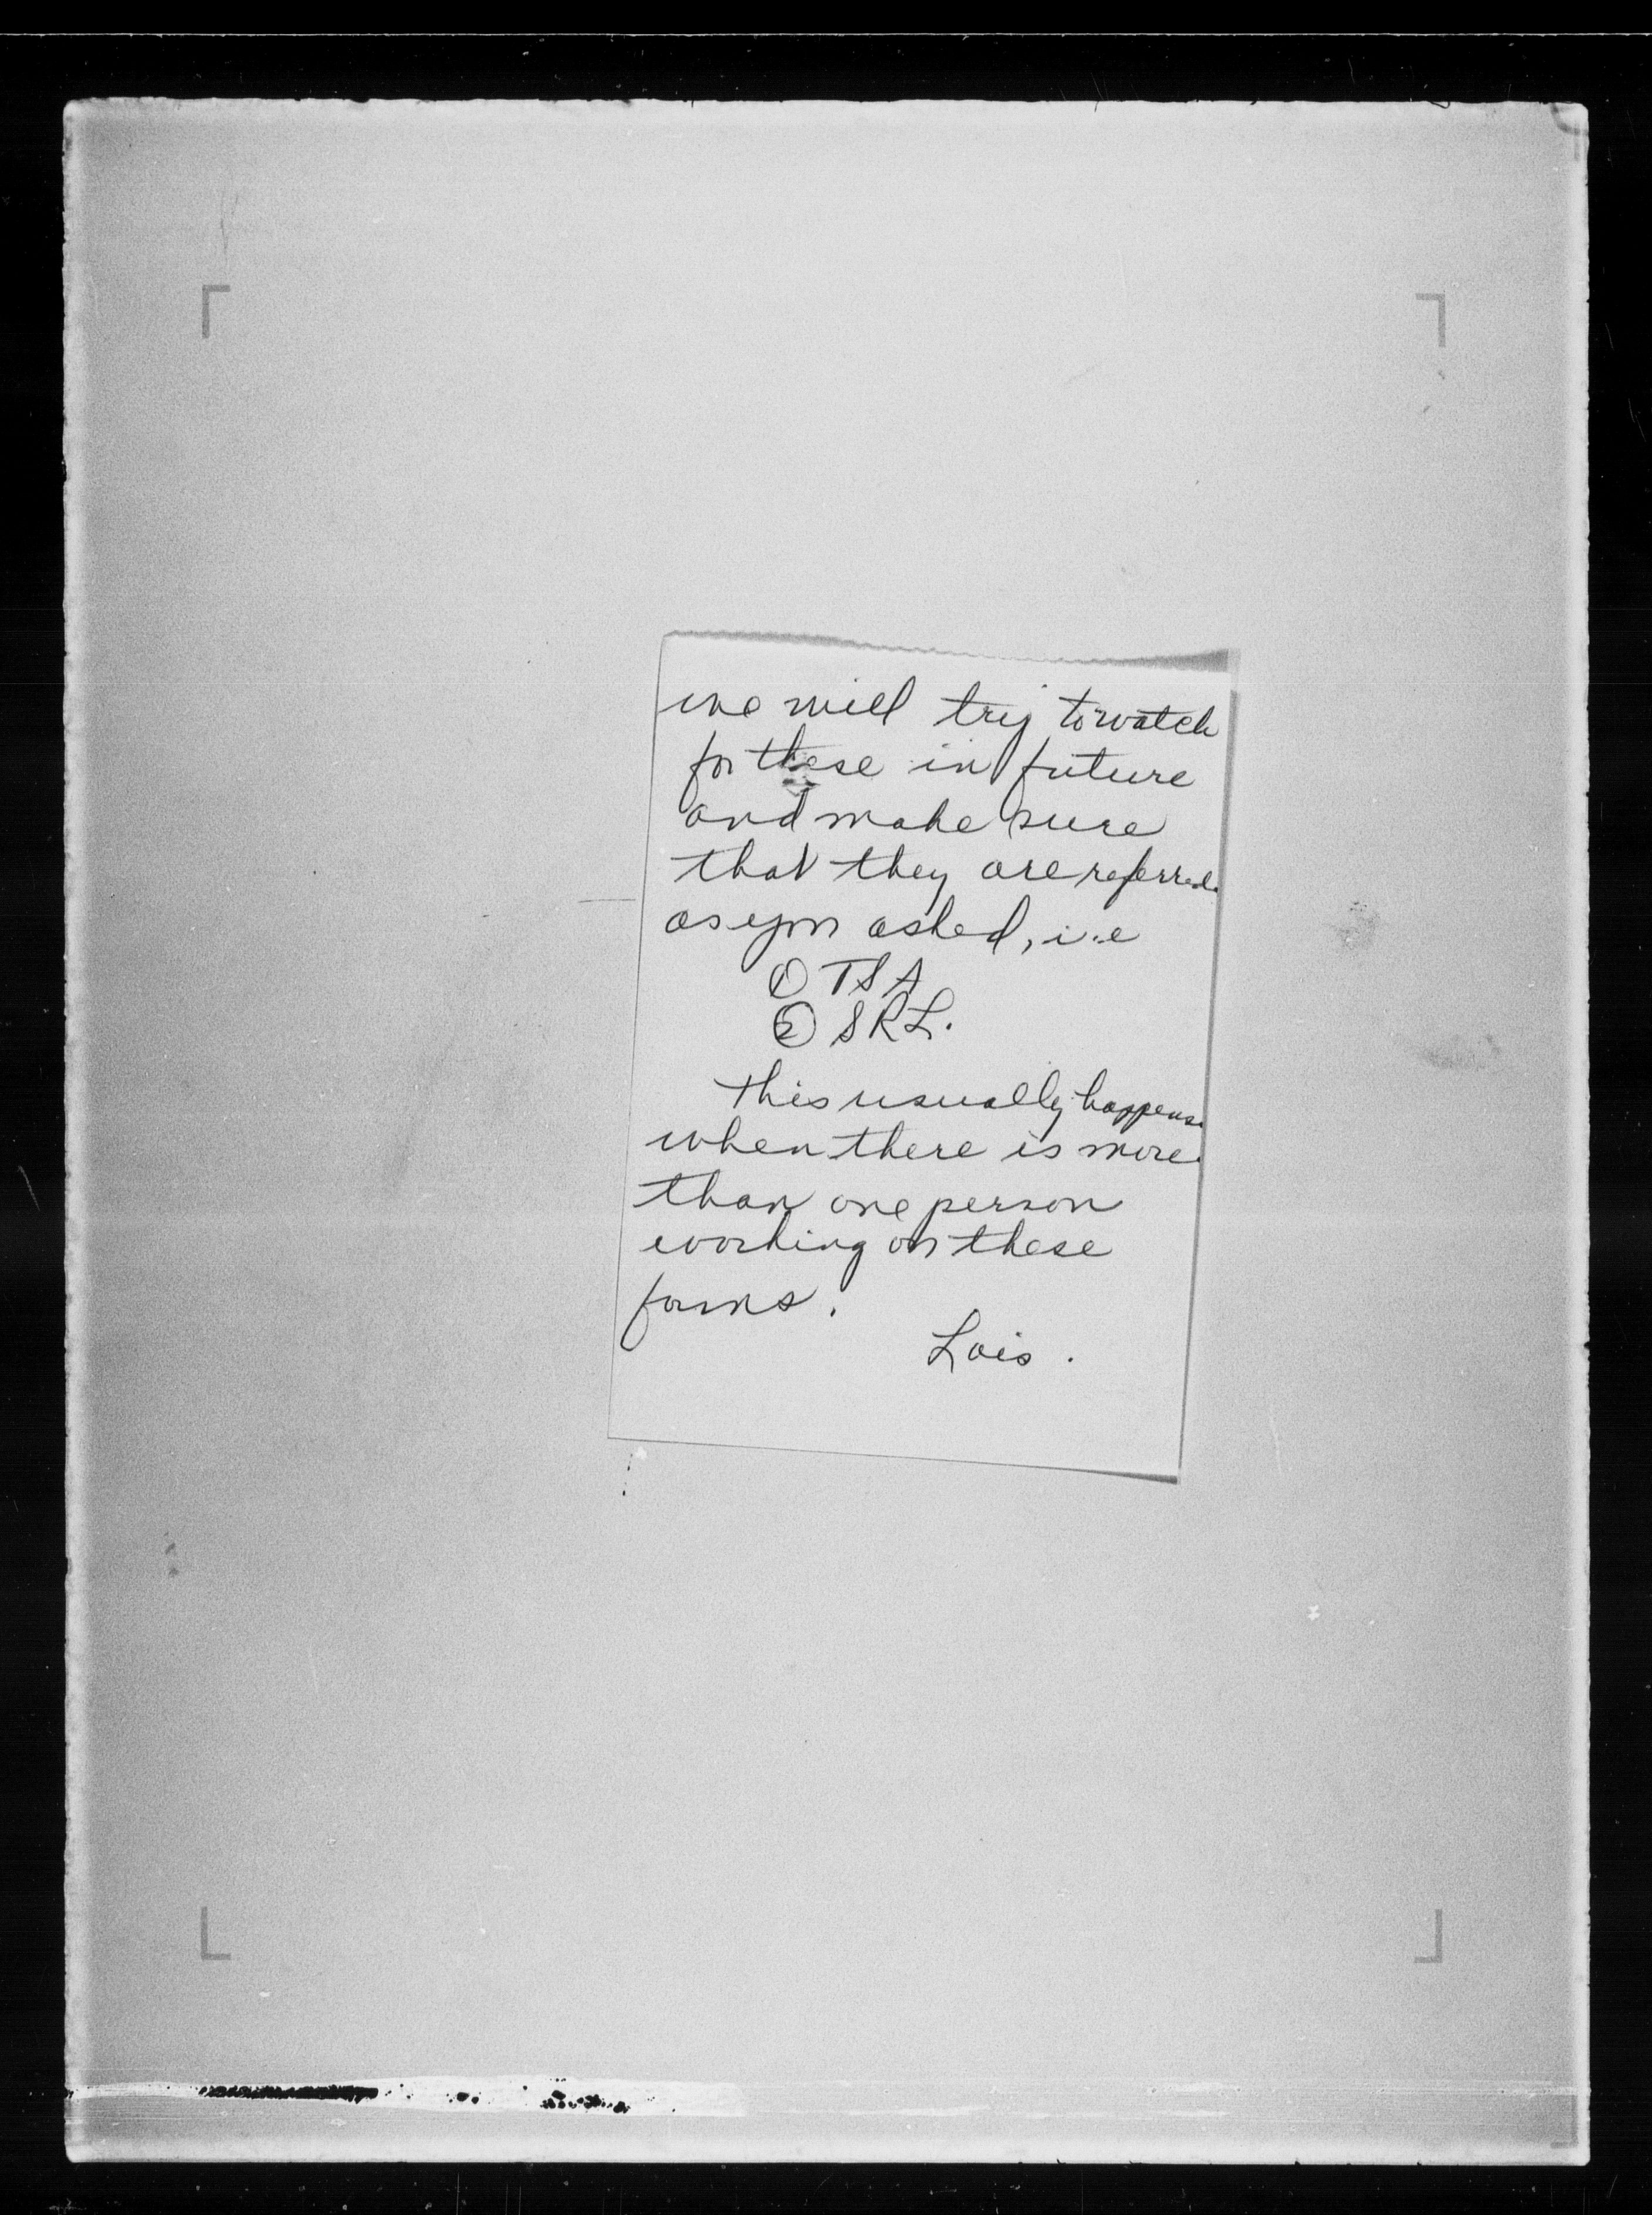 we will try to watch
for these in future
and make sure
that they are referred
as you asked, i.e
① TSA
② SRL.
This usually happens
when there is more
than one person
working on these
forms.
Lois.